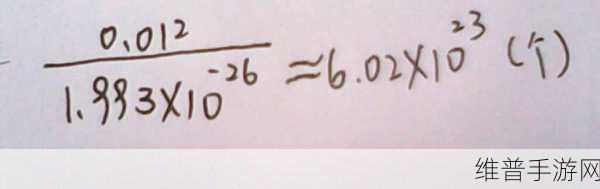 0.012 / 1.993×10^-26 ≈ 6.02×10^23 (个)
维普手游网